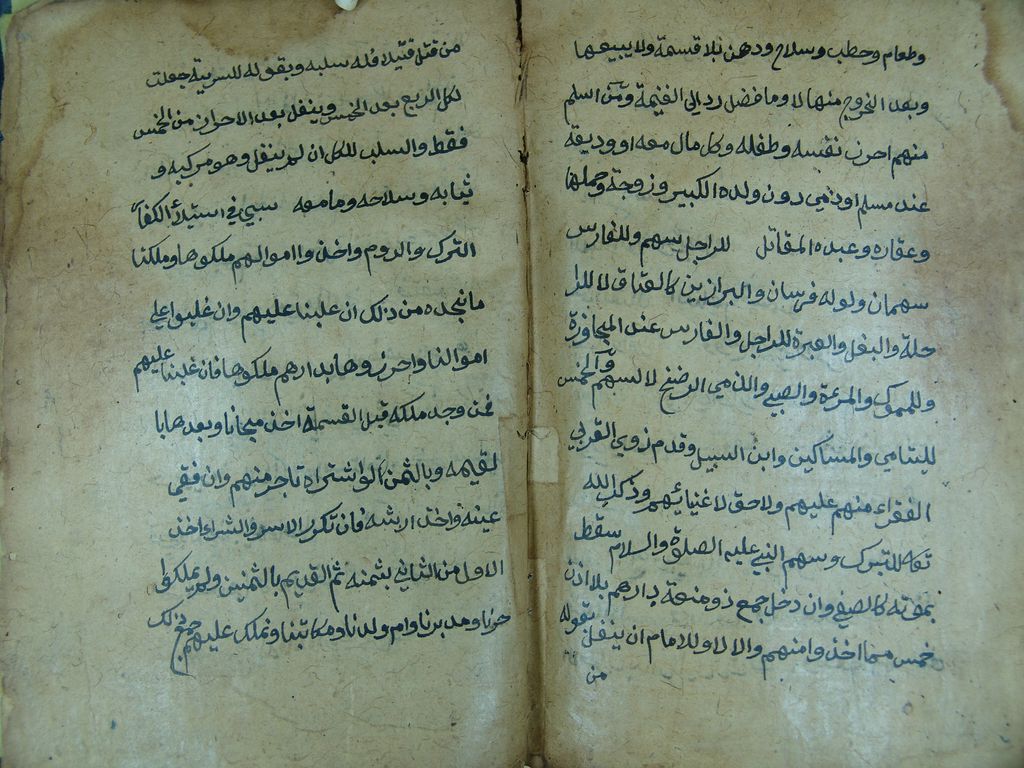 وطعام وحطب وسلاح ودهن بلا قسمة ولا يبيعها
وبعد الخروج منها لا وما فضل رد الي الغنيمة ومن اسلم
منهم احرز نفسه وطفله وكل مال معه او وديعة
عند مسلم او ذمي دون ولده الكبير وزوجة وحملها
وعقاره وعبده المقاتل للراجل سهم وللفارس
سهمان ولو له فرسان والبراذين كالعتاق لا للرا
حلة والبغل والعبرة للراجل والفارس عند المجاوزة
وللمملوك والمرءة والصبي والذمي الرضخ لا السهم والخمس
لليتامي والمساكين وابن السبيل وقدم ذوي القربي
الفقراء منهم عليهم ولا حق لاغنيائهم وذكر الله
تعالي للتبرك وسهم النبي عليه الصلوة والسلام سقط
بموته كالصفي وان دخل جمع ذو منعة دارهم بلا اذن
خمس مما اخذوا منهم والا لا وللامام ان ينفل بقوله
من
من قتل قتيلا فله سلبه وبقوله للسرية جعلت
لكم الربع بعد الخمس وينفل بعد الاحراز من الخمس
فقط والسلب للكل ان لم ينفل وهو مركبه و
ثيابه وسلاحه وما معه سبي في استيلاء الكفار
الترك والروم واخذوا اموالهم ملكوها وملكنا
ما نجده من ذلك ان غلبنا عليهم وان غلبوا علي
اموالنا واحرزوها بدارهم ملكوها فان غلبنا عليهم
فمن وجد ملكه قبل القسمة اخذه مجانا وبعدها با
لقيمه وبالثمن لو اشتراه تاجر منهم وان فقي
عينه واخذ ارشه فان تكرر الاسر والشراء اخذ
الاول من الثاني بثمنه ثم القديم بالثمنين ولم يملكوا
حرنا ومدبرنا وام ولدنا ومكاتبنا ونملك عليهم جميع ذلك